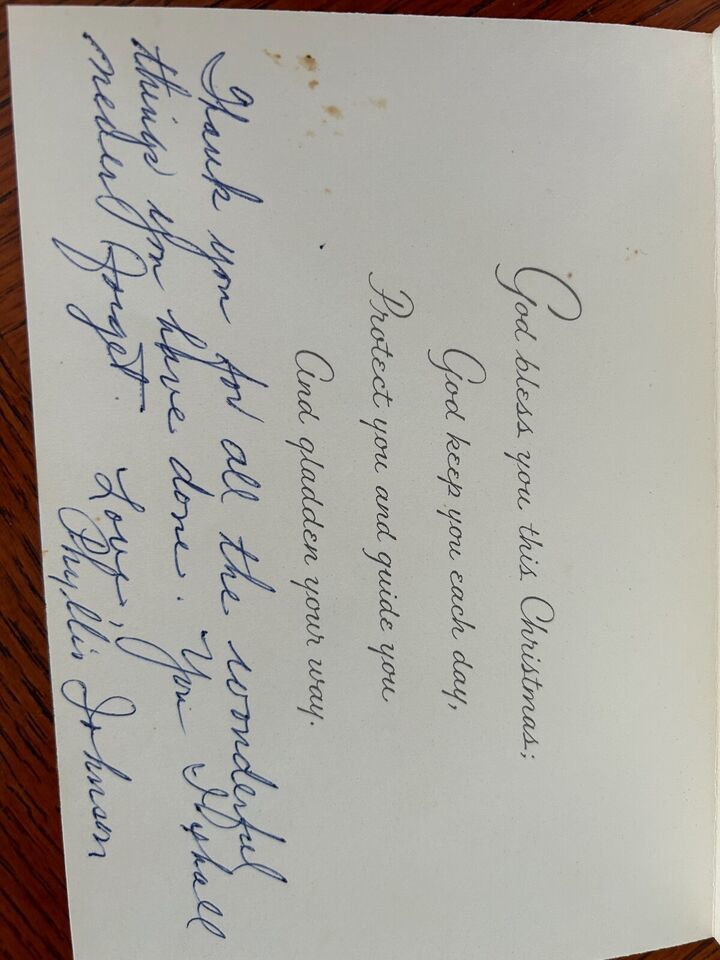 God bless you this Christmas;
God keep you each day,
Protect you and guide you
And gladden your way.
Thank you for all the wonderful
things you have done. You I shall
never forget. Love,
Phyllis Johnson